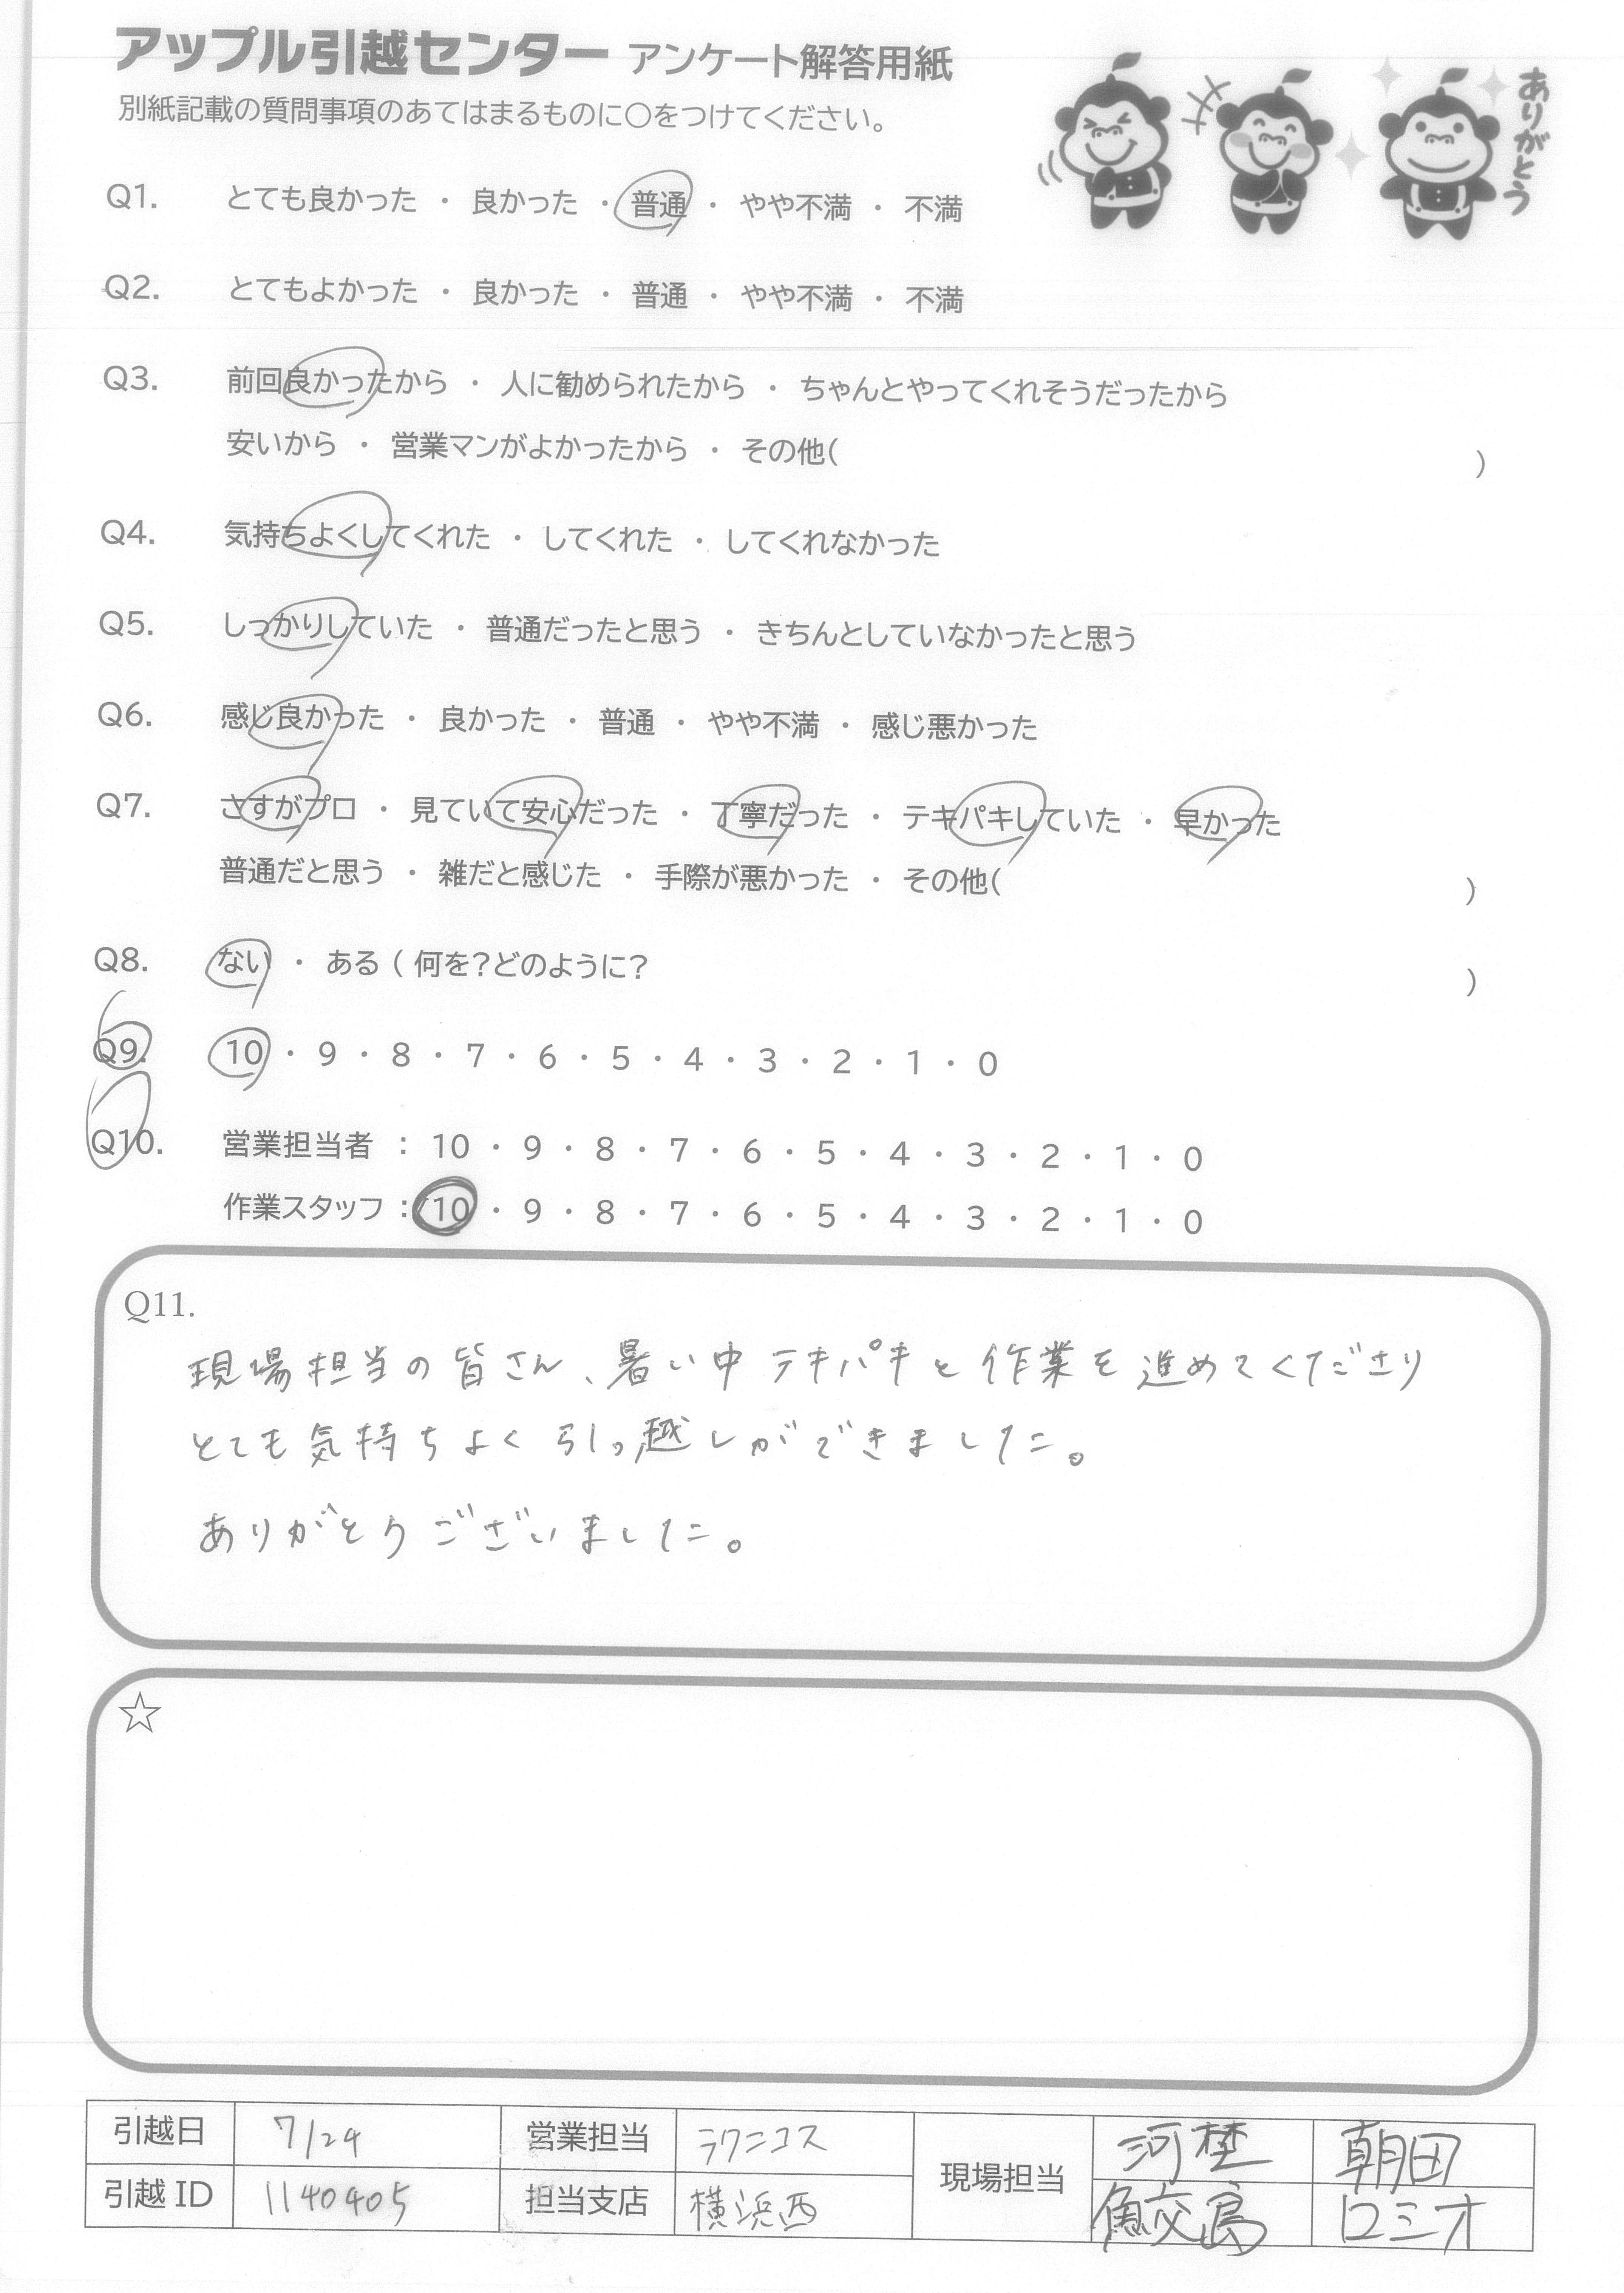 アップル引越センター アンケート解答用紙
別紙記載の質問事項のあてはまるものに〇をつけてください。
ありがとう
Q1. とても良かった ・ 良かった ・ 普通 ・ やや不満 ・ 不満
Q2. とてもよかった ・ 良かった ・ 普通 ・ やや不満 ・ 不満
Q3. 前回良かったから ・ 人に勧められたから ・ ちゃんとやってくれそうだったから
安いから ・ 営業マンがよかったから ・ その他( )
Q4. 気持ちよくしてくれた ・ してくれた ・ してくれなかった
Q5. しっかりしていた ・ 普通だったと思う ・ きちんとしていなかったと思う
Q6. 感じ良かった ・ 良かった ・ 普通 ・ やや不満 ・ 感じ悪かった
Q7. さすがプロ ・ 見ていて安心だった ・ 丁寧だった ・ テキパキしていた ・ 早かった
普通だと思う ・ 雑だと感じた ・ 手際が悪かった ・ その他( )
Q8. ない ・ ある ( 何を?どのように? )
Q9. 10 ・ 9 ・ 8 ・ 7 ・ 6 ・ 5 ・ 4 ・ 3 ・ 2 ・ 1 ・ 0
Q10. 営業担当者 : 10 ・ 9 ・ 8 ・ 7 ・ 6 ・ 5 ・ 4 ・ 3 ・ 2 ・ 1 ・ 0
作業スタッフ : 10 ・ 9 ・ 8 ・ 7 ・ 6 ・ 5 ・ 4 ・ 3 ・ 2 ・ 1 ・ 0
Q11.
現場担当の皆さん、暑い中テキパキと作業を進めてくださり
とても気持ちよく引っ越しができました。
ありがとうございました。
☆
引越日 7/24 営業担当 ラクニコス 現場担当 河埜 朝田
引越 ID 1140405 担当支店 横浜西 鮫島 ロミオ